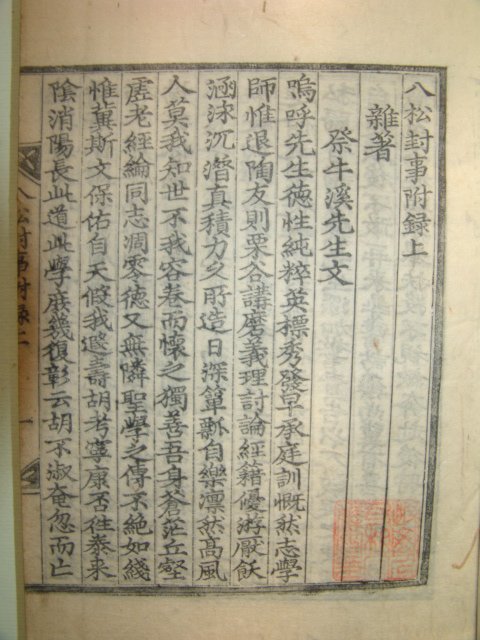 八松封事附録上
雜著
祭牛溪先生文
嗚呼先生德性純粹英標秀發早承庭訓慨然志學
師惟退陶友則栗谷講磨義理討論經籍優游厭飫
涵泳沉潛真積力之所造日深簞瓢自樂凛然高風
人莫我知世不我容卷而懷之獨善吾身蒼茫丘壑
虛老經綸同志凋零德又無隣聖學之傳不絶如綫
惟冀斯文保佑自天假我遐壽胡考寧康否往泰來
陰消陽長此道此學庶幾復彰云胡不淑奄忽而亡
八松封事附録上 一